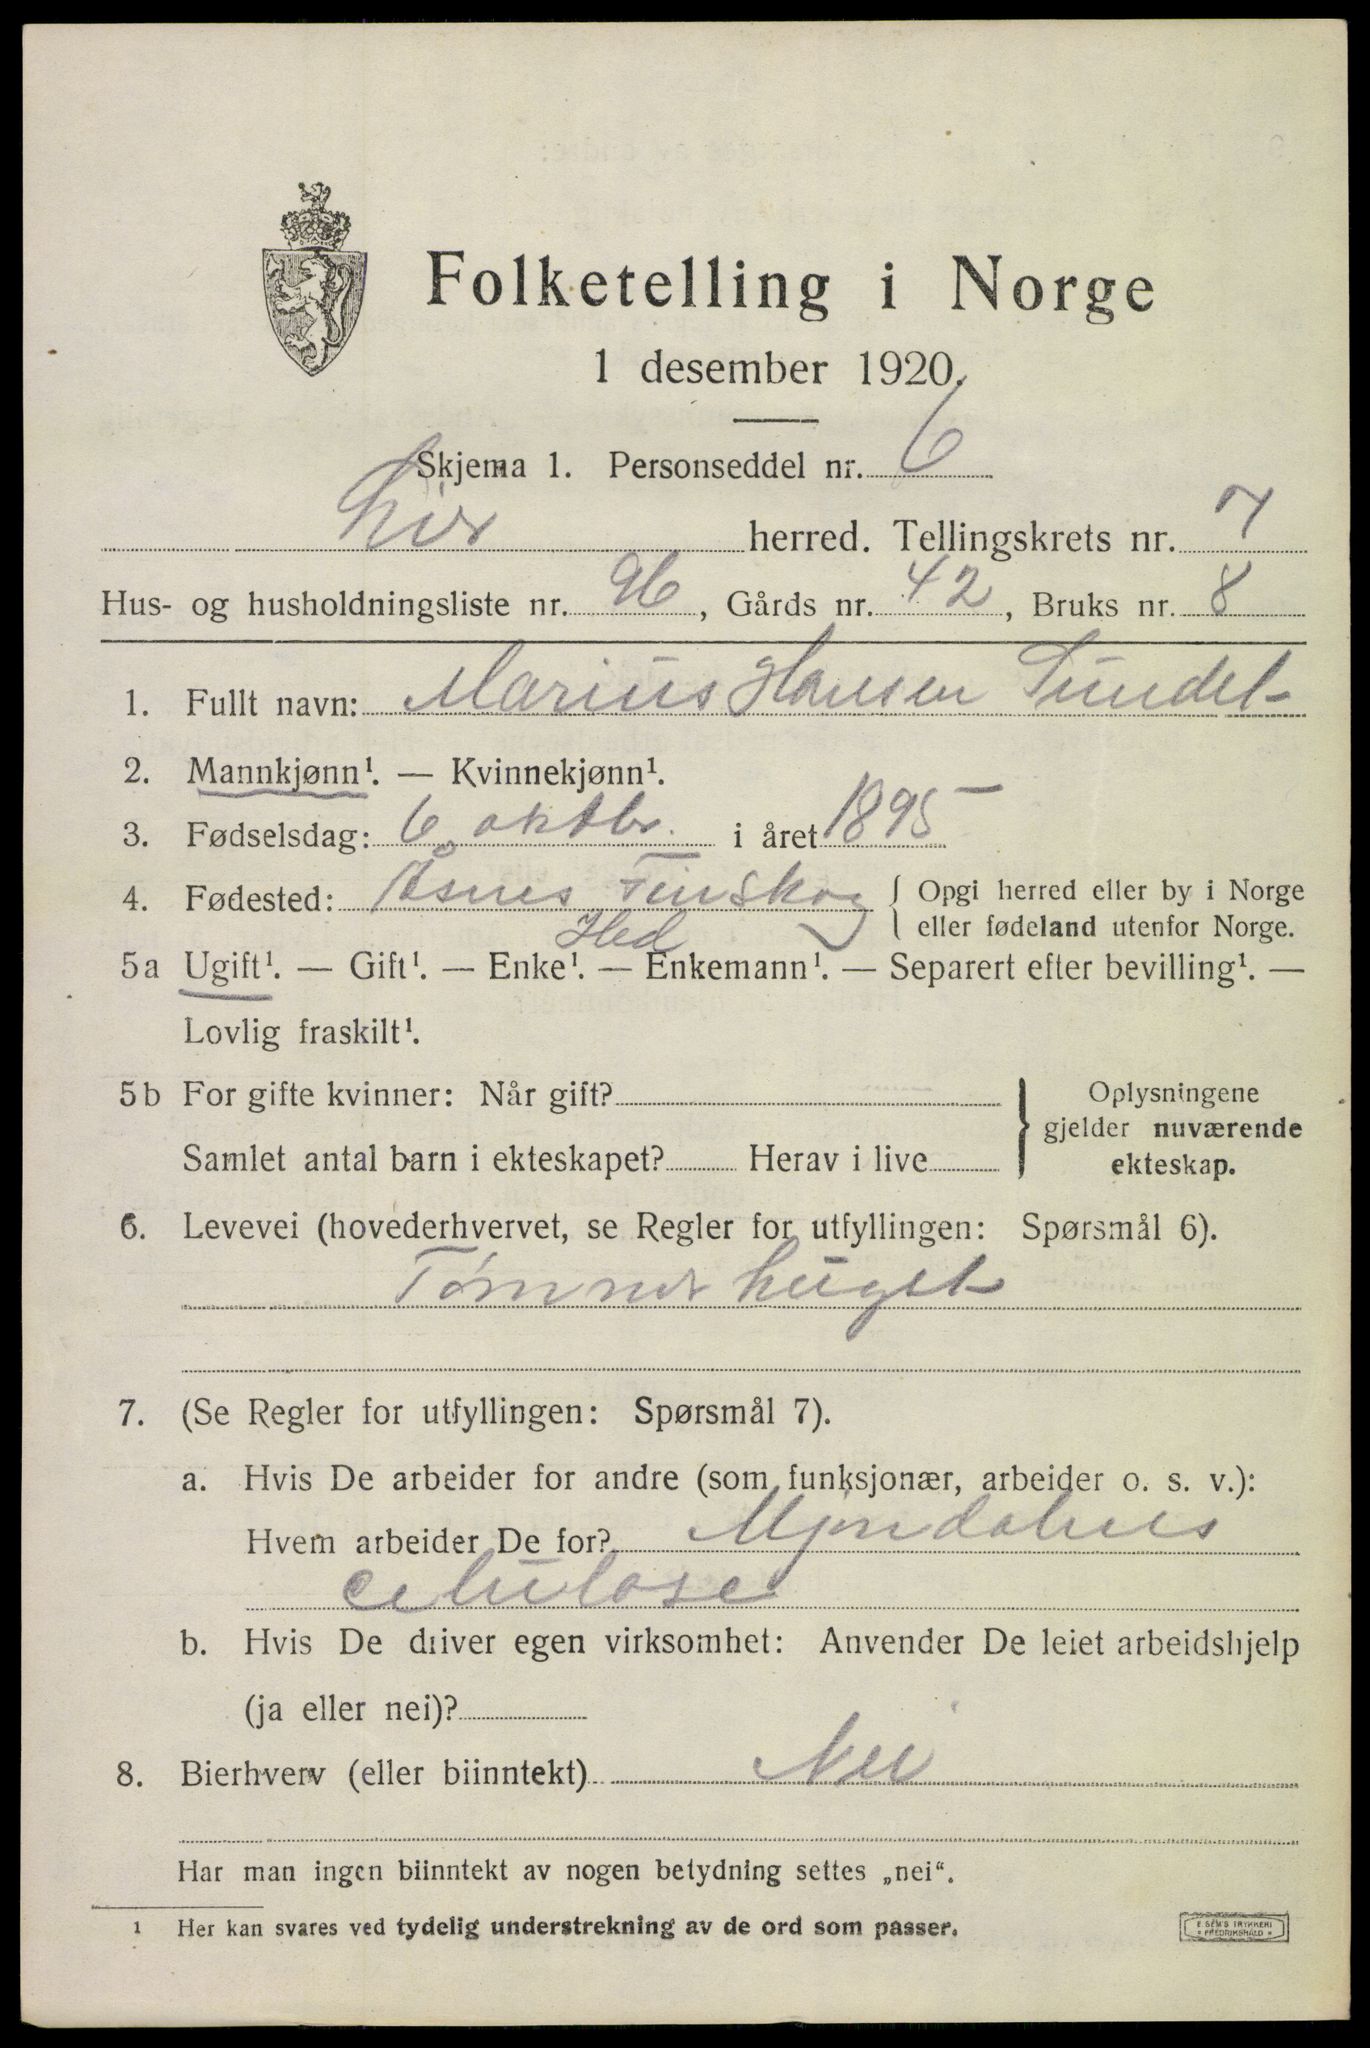 Folketelling i Norge
1 desember 1920.
Skjema 1. Personseddel nr. 6
Lier herred. Tellingskrets nr. 7
Hus- og husholdningsliste nr. 96, Gårds nr. 42, Bruks nr. 8
1. Fullt navn: Marius Hansen Sundet
2. Mannkjønn¹. — Kvinnekjønn¹.
3. Fødselsdag: 6 oktbr. i året 1895
4. Fødested: Åsnes Finskog { Opgi herred eller by i Norge
eller fødeland utenfor Norge.
Hed
5a Ugift¹. — Gift¹. — Enke¹. — Enkemann¹. — Separert efter bevilling¹. —
Lovlig fraskilt¹.
5b For gifte kvinner: Når gift?
Samlet antal barn i ekteskapet? Herav i live
Oplysningene
gjelder nuværende
ekteskap.
6. Levevei (hovederhvervet, se Regler for utfyllingen: Spørsmål 6).
Tømmer huget
7. (Se Regler for utfyllingen: Spørsmål 7).
a. Hvis De arbeider for andre (som funksjonær, arbeider o. s. v.):
Hvem arbeider De for? Mjøndalens
celulose
b. Hvis De driver egen virksomhet: Anvender De leiet arbeidshjelp
(ja eller nei)?
8. Bierhverv (eller biinntekt) Nei
Har man ingen biinntekt av nogen betydning settes „nei“.
¹ Her kan svares ved tydelig understrekning av de ord som passer.
E. SEM'S TRYKKERI
FREDRIKSHALD